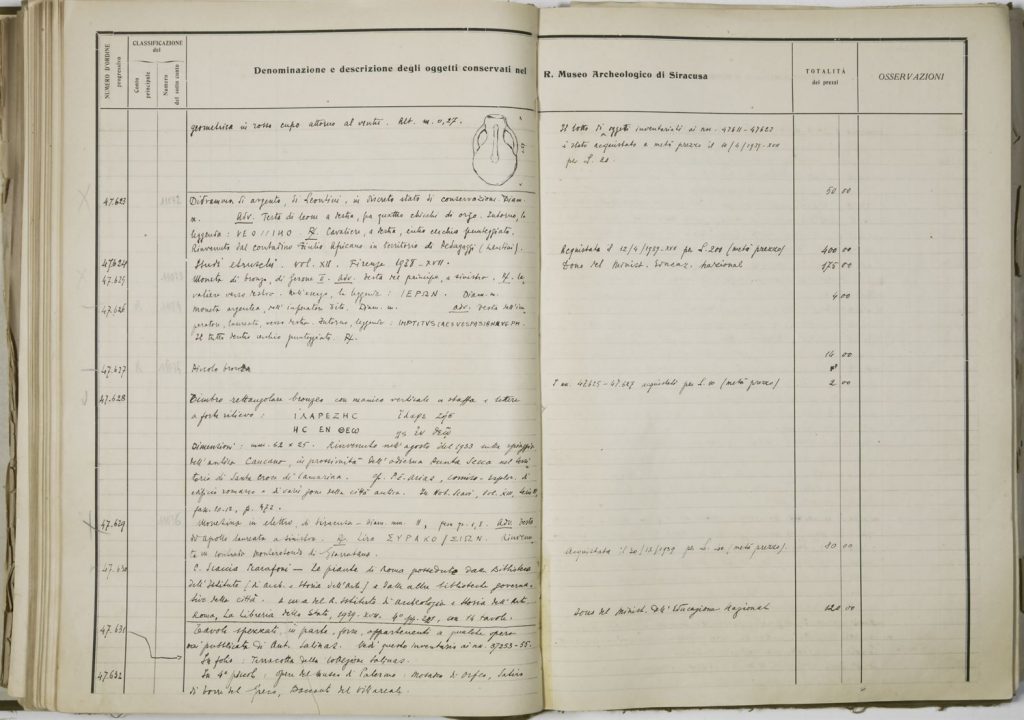 NUMERO D'ORDINE progressivo
CLASSIFICAZIONE del
Conto principale
Numero del sotto conto
Denominazione e descrizione degli oggetti conservati nel
geometrica in rosso cupo attorno al ventre. Alt. m. 0,27.
47.623 Didramma di argento, di Leontini, in discreto stato di conservazione. Diam.
m. Adv. Testa di leone a destra, fra quattro chicchi di orzo. Intorno, la
leggenda: Cavaliere, a destra, entro cerchio punteggiato.
Rinvenuto dal contadino Africano in territorio di Pedagaggi (Lentini).
47.624 Studi etruschi. vol. XII, Firenze 1938-XVII.
47.625 Moneta di bronzo, di Gerone II. Adv. Testa del principe, a sinistra.
valiere verso destra. Nell'esergo, la leggenda: ΙΕΡΩΝ. Diam. m.
47.626 Moneta argentea, dell'imperatore Tito. Diam. m. Adv. Testa dell'im-
peratore, laureata, verso destra. Intorno, leggenda:
Il tutto dentro cerchio punteggiato. R.
47.627 Piccolo bronzo
47.628 Timbro rettangolare bronzeo con manico verticale a staffa e lettere
a forte rilievo: ΙΛΑΡΕΖΗC
HC EN ΘΕΩ
Dimensioni: mm. 62 x 25. Rinvenuto nell'agosto del 1933 sulla spiaggia
dell'antica Caucana, in prossimità dell'odierna Punta Secca nel terri-
torio di Santa Croce di Camarina. Cf. P.E. Arias, Comiso - Esplor. di
edificio romano e di varie zone della città antica. In Not. Scavi, vol. XIII,
fasc. 10-12, p. 472.
47.629 Monetina in elettro, di Siracusa - Diam. mm. 11, Adv. Testa
di Apollo laureata a sinistra. R. Lira ΣΥΡΑΚΟ/ΣΙΩΝ. Rinvenu-
ta in contrada di Giarratana.
47.630 C. Scaccia Scarafoni - Le piante di Roma possedute dalla Biblioteca
dell'Istituto (di Arch. e Storia dell'Arte) e dalle altre biblioteche governa-
tive della città. A cura del R. Istituto di Archeologia e Storia dell'Arte
Roma, La Libreria dello Stato, 1939-XVII. 4° pp. con 16 tavole.
47.631 Tavole spezzate, in parte, forse, appartenenti a qualche opera
mai pubblicata di Ant. Salinas. Vedi questo inventario ai nn. 37253-55.
In folio: Terracotte della collezione Salinas.
47.632 In 4° piccolo: opere del museo di Palermo: Mosaico di Orfeo, Satiro
di Torre del Greco, Baccanti del Villareale.
R. Museo Archeologico di Siracusa
TOTALITÀ dei prezzi
OSSERVAZIONI
Il lotto di oggetti inventariati ai nn. 47611-47622
è stato acquistato a metà prezzo il
per L. 20.
50 00
Acquistata il 12/4/1939-XVII per L. 200 (metà prezzo) 400 00
Dono del Minist. Educaz. Nazional 175 00
4 00
14 00
I nn. 47625-47627 acquistati per L. 10 (metà prezzo) 2 00
Acquistata il per L. 40 (metà prezzo). 80 00
Dono del Minist. dell'Educazione Nazional 120 00